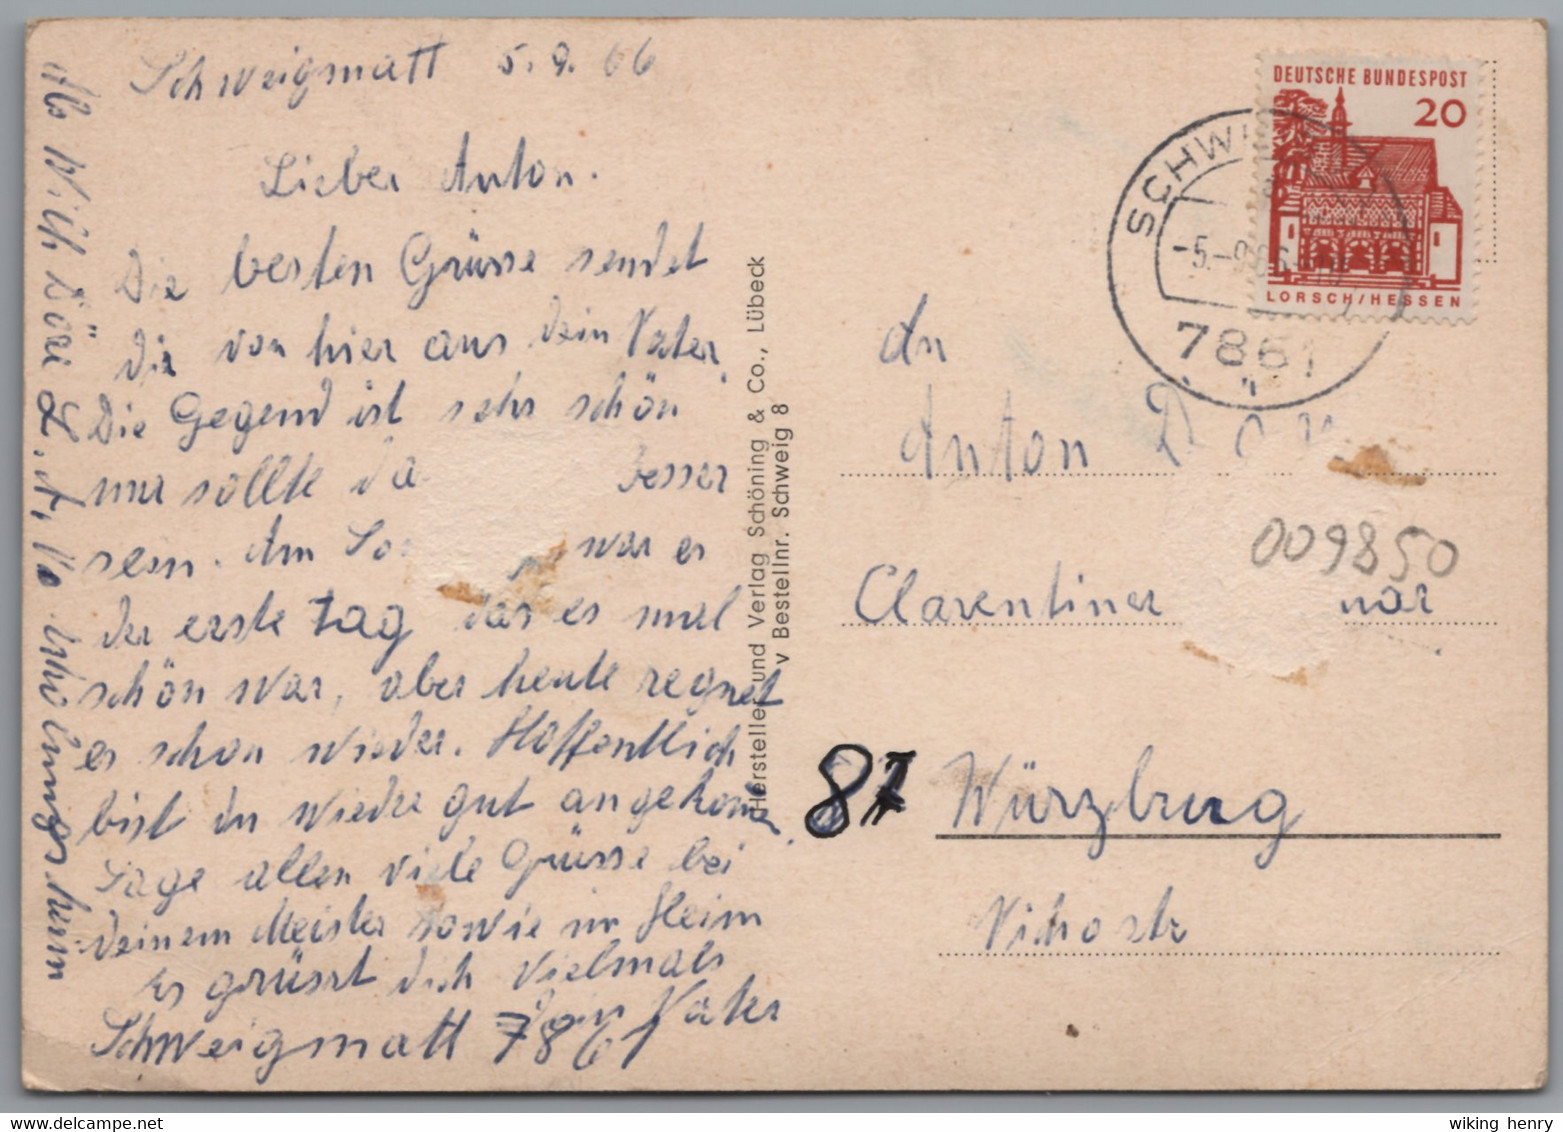 Schweigmatt 5.9.66
Lieber Anton.
Die besten Grüsse sendet
dir von hier aus dein Vater.
Die Gegend ist sehr schön
nur sollte da besser
sein. Am So war es
der erste tag das es mal
schön war, aber heute regnet
es schon wieder. Hoffentlich
bist du wieder gut angekommen.
Sage allen viele Grüsse bei
deinem Meister sowie im Heim
Es grüsst dich vielmals
dein Vater
Schweigmatt 7861
Erholungsheim
Hersteller und Verlag Schöning & Co., Lübeck
v Bestellnr. Schweig 8
DEUTSCHE BUNDESPOST
20
LORSCH/HESSEN
SCHW
-5.-9.66
7861
An
Anton
009850
Clarentiner
87 Würzburg
wiking henry